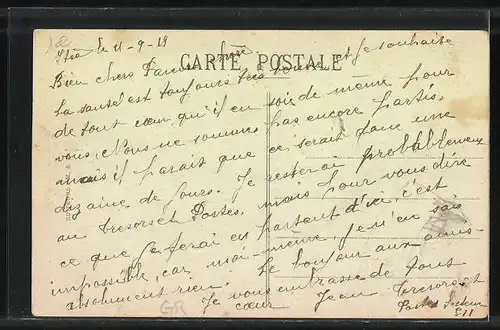 le 11-9-18
CARTE POSTALE
Bien chers Parents
La santé est toujours très bonne et je souhaite
de tout cœur qu'il en soit de même pour
vous. Nous ne sommes pas encore partis.
mais il parait que ce serait dans une
dizaine de jours. Je resterai probablement
au Tresor et Postes. mais pour vous dire
ce que je ferai en partant d'ici, c'est
impossible, car moi-même, je n'en sais
absolument rien. Le bonjour aux amis
Je vous embrasse de tout
cœur Jean Tresor et
Postes Secteur
511
GR